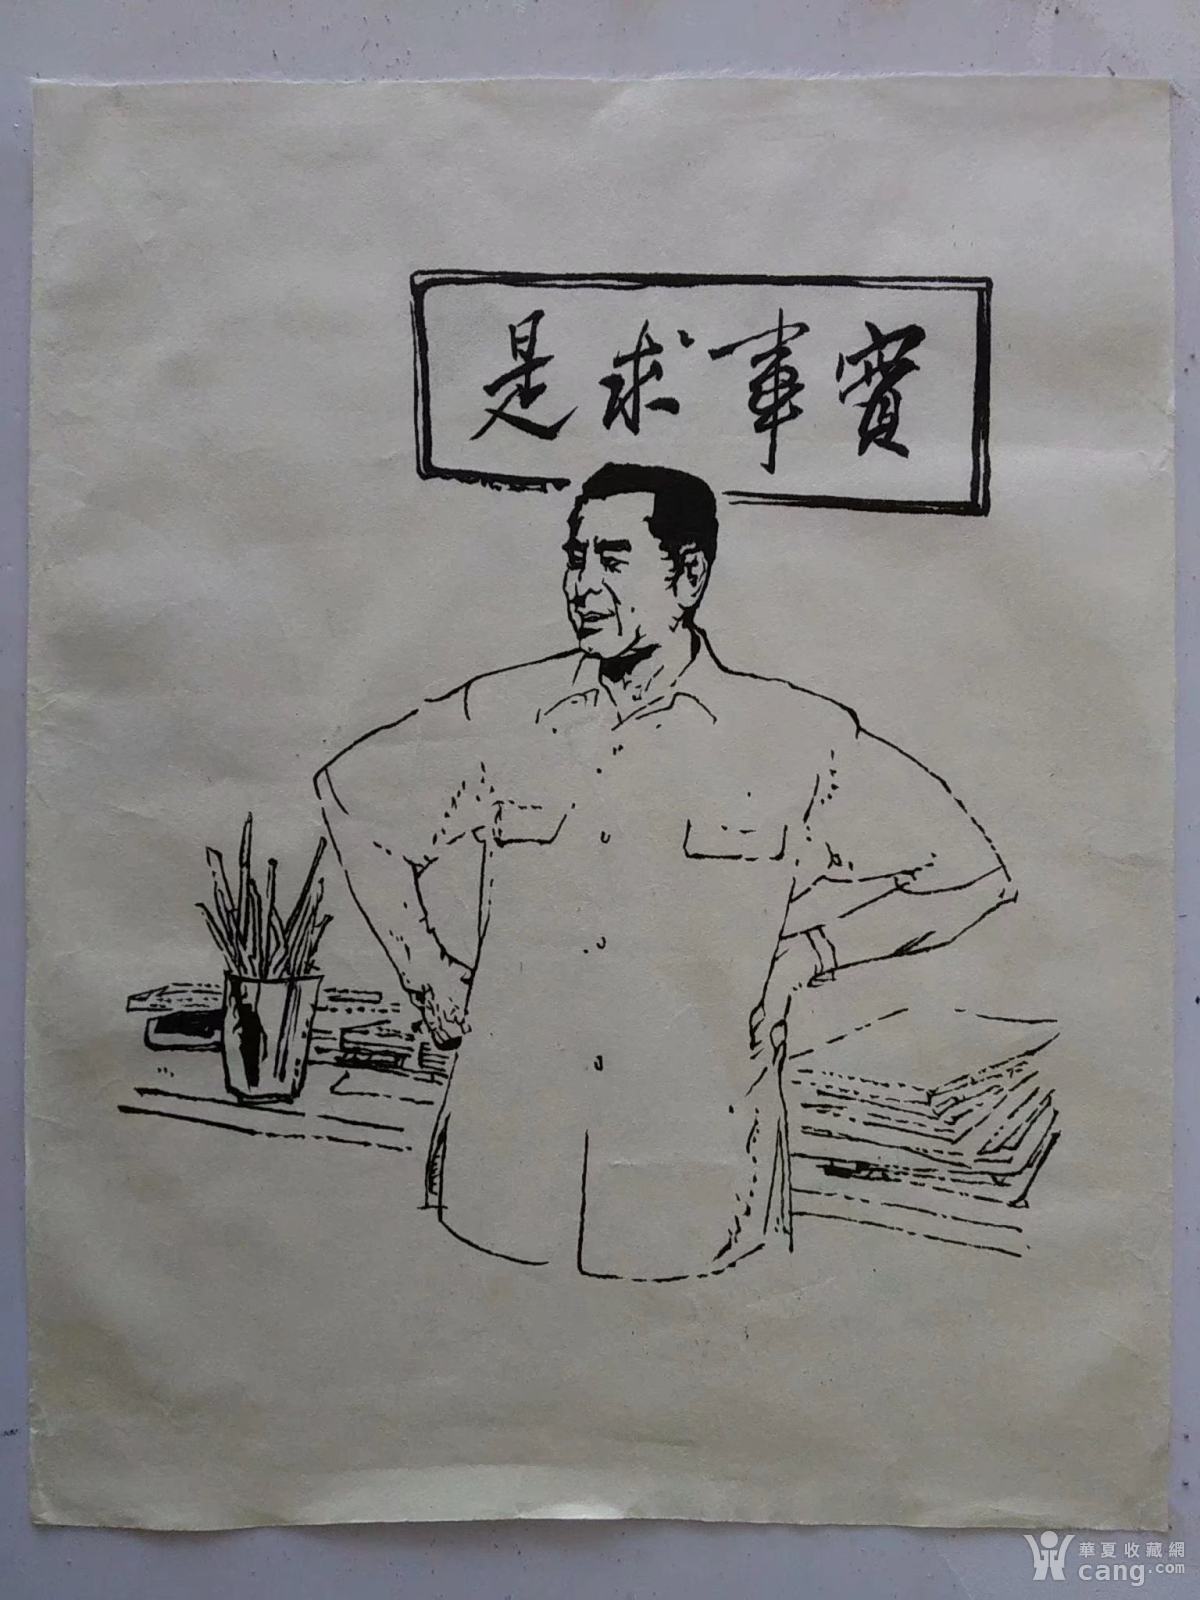 實事求是
華夏收藏網
cang.com